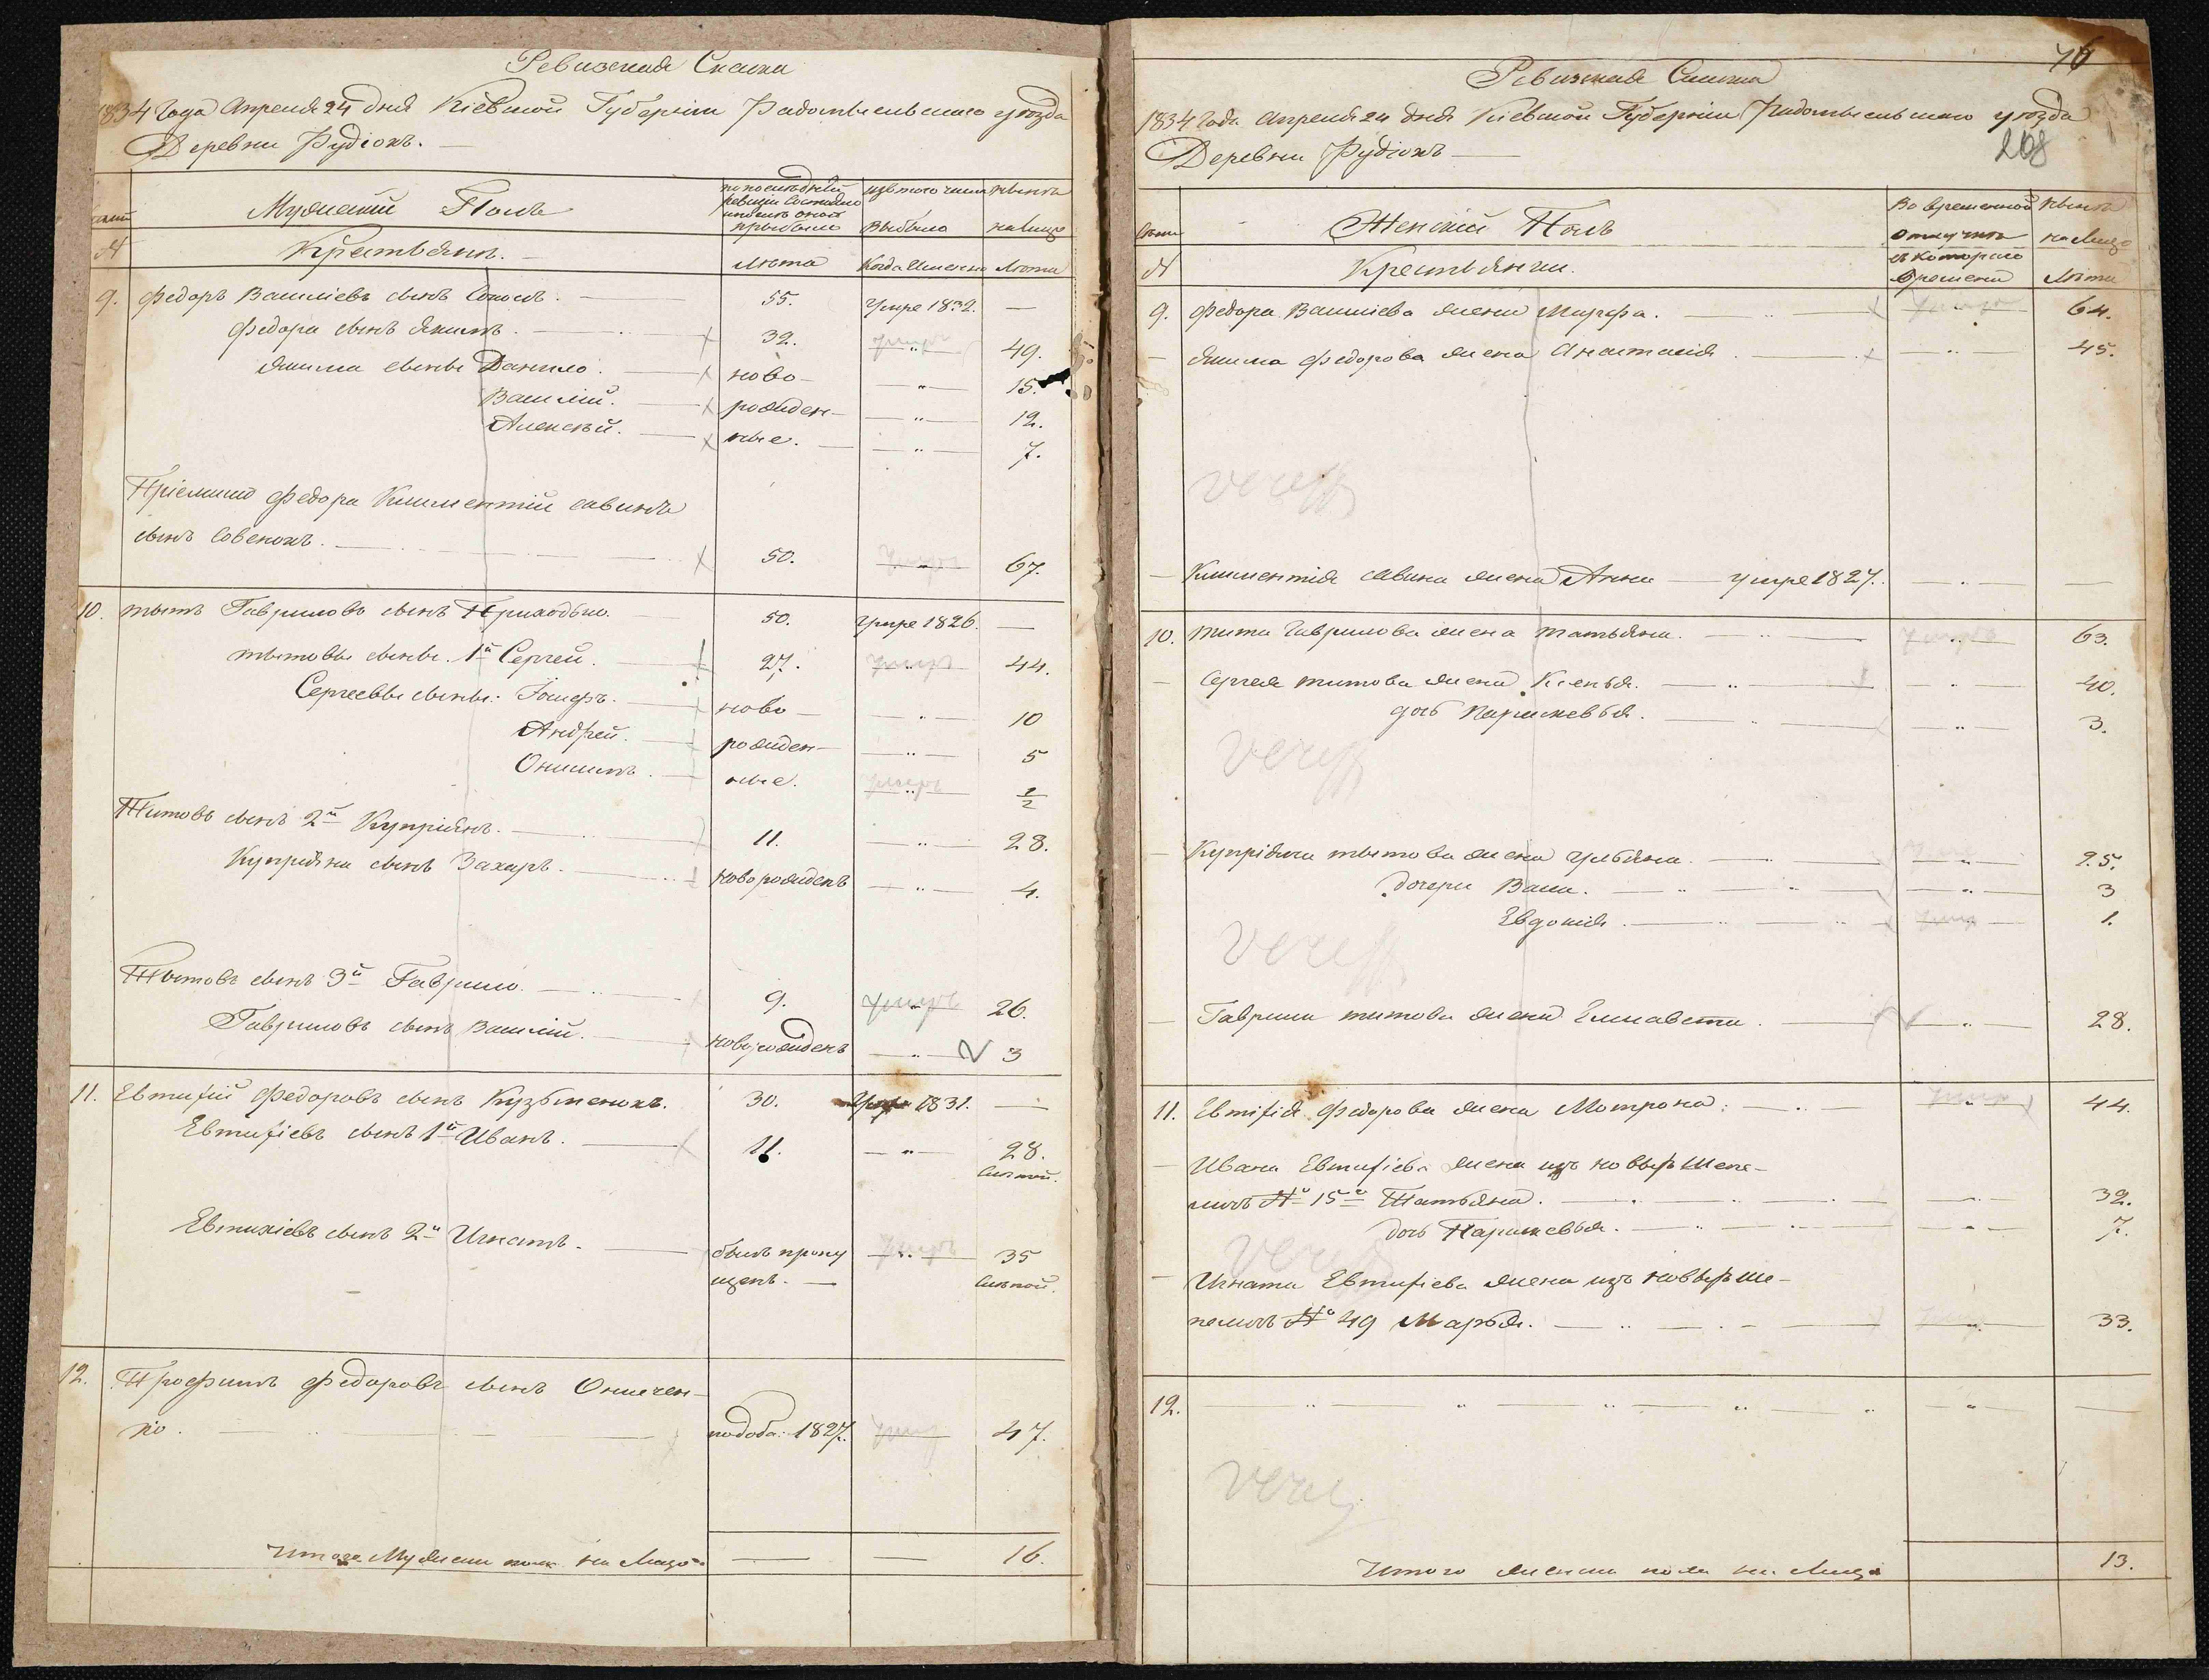 Ревизская Сказка
1834 Года Апреля 24 дня Кіевской Губерніи Радомысльскаго уѣзда
Деревни Рудіокъ.
Мужескій Полъ
по последней ревизіи состояло и после оной прибыло
изъ того числа выбыло
ныне на лицо
№
Крестьянъ.
Лѣта
Когда Именно
Лѣта
9. Федоръ Василіевъ сынъ Соколъ. 55. Умре 1832. —
Федора сынъ Якимъ. 32. 49.
Якима сыны Данило. ново- 15.
Василій. рожден- 12.
Алексѣй. ные. 7.
Пріемишъ Федора Климентій савинъ
сынъ Совенокъ. 50. 67.
10. тытъ Гавриловъ сынъ Приходько. 50. Умре 1826. —
тытовы сыны. 1й Сергей. 27. 44.
Сергеевы сыны: Іосифъ. ново- 10
Андрей. рожден- 5
Онисимъ. ные. 1/2
Титовъ сынъ 2й Купріянъ. 11. 28.
Купріяна сынъ Захаръ. Новорожденъ 4.
Тытовъ сынъ 3й Гаврило. 9. умеръ 26.
Гавриловъ сынъ Василій. Новорожденъ 3
11. Евтихій Федоровъ сынъ Кузьменокъ. 30. Умре 1831. —
Евтихіевъ сынъ 1й Иванъ. 11. 28.
Слѣпой.
Евтихіевъ сынъ 2й Игнатъ. былъ пропу 35
щенъ. — Слѣпой.
12. Профимъ Федоровъ сынъ Онищен-
ко. 1827. 47.
Итого Мужеска пола на Лицо 16.
76
Ревизская Сказка
1834 Года Апреля 24 дня Кіевской Губерніи Радомысльскаго уѣзда
Деревни Рудіокъ
208
Женскій Полъ
Во временной отлучке
съ котораго времени
Ныне на Лицо
№
Крестьянки.
Лѣта
9. Федора Василіева жена Марфа. 64.
Якима Федорова жена Анастасія 45.
Климентія савина жена Анна — умре 1827. —
10. тита Гаврилова жена татьяна. 63.
Сергея титова жена Ксенья. 40.
дочь Парасковья. 3.
Купріяна тытова жена Ульяна. 25.
дочери Васа. 3
Евдокія. 1.
Гаврила титова жена Елисавета. 28.
11. Евтіхія Федорова жена Мотрона: 44.
Ивана Евтихіева жена изъ новыхъ Шепе-
личъ № 15й Татьяна. 32.
дочь Парасковья. 7.
Игната Евтихіева жена изъ новыхъ Ше-
пеличъ № 49 Марья. 33.
12.
Итого женска пола на Лицо 13.